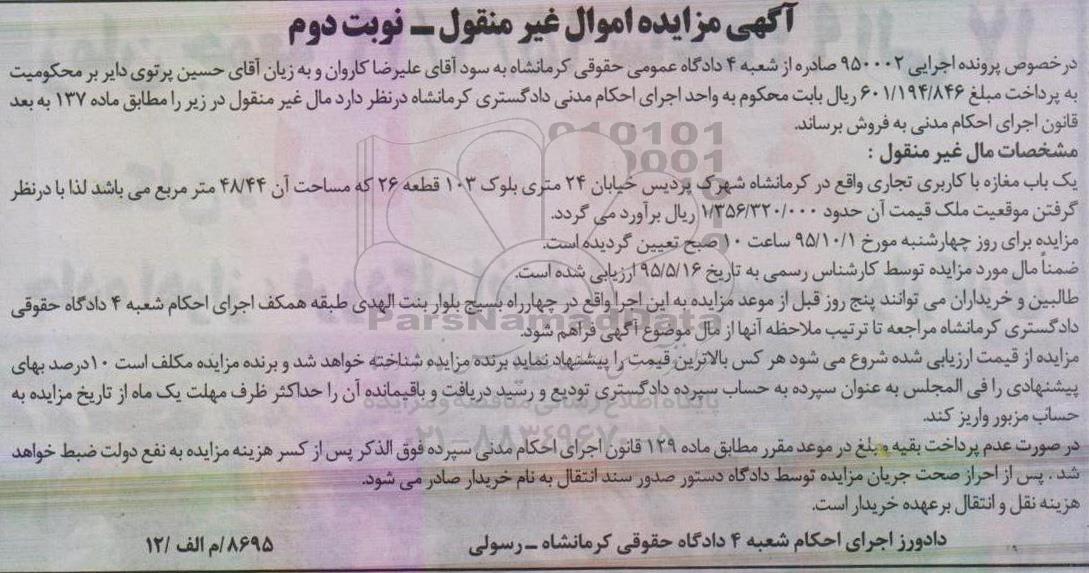 آگهی مزایده اموال غیر منقول ـ نوبت دوم
درخصوص پرونده اجرایی ۹۵۰۰۰۲ صادره از شعبه ۴ دادگاه عمومی حقوقی کرمانشاه به سود آقای علیرضا کاروان و به زیان آقای حسین پرتوی دایر بر محکومیت
به پرداخت مبلغ ۶۰۱/۱۹۴/۸۴۶ ریال بابت محکوم به واحد اجرای احکام مدنی دادگستری کرمانشاه درنظر دارد مال غیر منقول در زیر را مطابق ماده ۱۳۷ به بعد
قانون اجرای احکام مدنی به فروش برساند.
مشخصات مال غیر منقول :
یک باب مغازه با کاربری تجاری واقع در کرمانشاه شهرک پردیس خیابان ۲۴ متری بلوک ۱۰۳ قطعه ۲۶ که مساحت آن ۴۸/۴۴ متر مربع می باشد لذا با درنظر
گرفتن موقعیت ملک قیمت آن حدود ۱/۳۵۶/۳۲۰/۰۰۰ ریال برآورد می گردد.
مزایده برای روز چهارشنبه مورخ ۹۵/۱۰/۱ ساعت ۱۰ صبح تعیین گردیده است.
ضمناً مال مورد مزایده توسط کارشناس رسمی به تاریخ ۹۵/۵/۱۶ ارزیابی شده است.
طالبین و خریداران می توانند پنج روز قبل از موعد مزایده به این اجرا واقع در چهارراه بسیج بلوار بنت الهدی طبقه همکف اجرای احکام شعبه ۴ دادگاه حقوقی
ParsNamadData
دادگستری کرمانشاه مراجعه تا ترتیب ملاحظه آنها از مال موضوع آگهی فراهم شود.
مزایده از قیمت ارزیابی شده شروع می شود هر کس بالاترین قیمت را پیشنهاد نماید برنده مزایده شناخته خواهد شد و برنده مزایده مکلف است ۱۰درصد بهای
پیشنهادی را فی المجلس به عنوان سپرده به حساب سپرده دادگستری تودیع و رسید دریافت و باقیمانده آن را حداکثر ظرف مهلت یک ماه از تاریخ مزایده به
پایگاه اطلاع رسانی مناقصه و مزایده
حساب مزبور واریز کند.
در صورت عدم پرداخت بقیه مبلغ در موعد مقرر مطابق ماده ۱۲۹ قانون اجرای احکام مدنی سپرده فوق الذکر پس از کسر هزینه مزایده به نفع دولت ضبط خواهد
شد . پس از احراز صحت جریان مزایده توسط دادگاه دستور صدور سند انتقال به نام خریدار صادر می شود.
هزینه نقل و انتقال برعهده خریدار است.
دادورز اجرای احکام شعبه ۴ دادگاه حقوقی کرمانشاه ـ رسولی
۸۶۹۵/م الف /۱۲